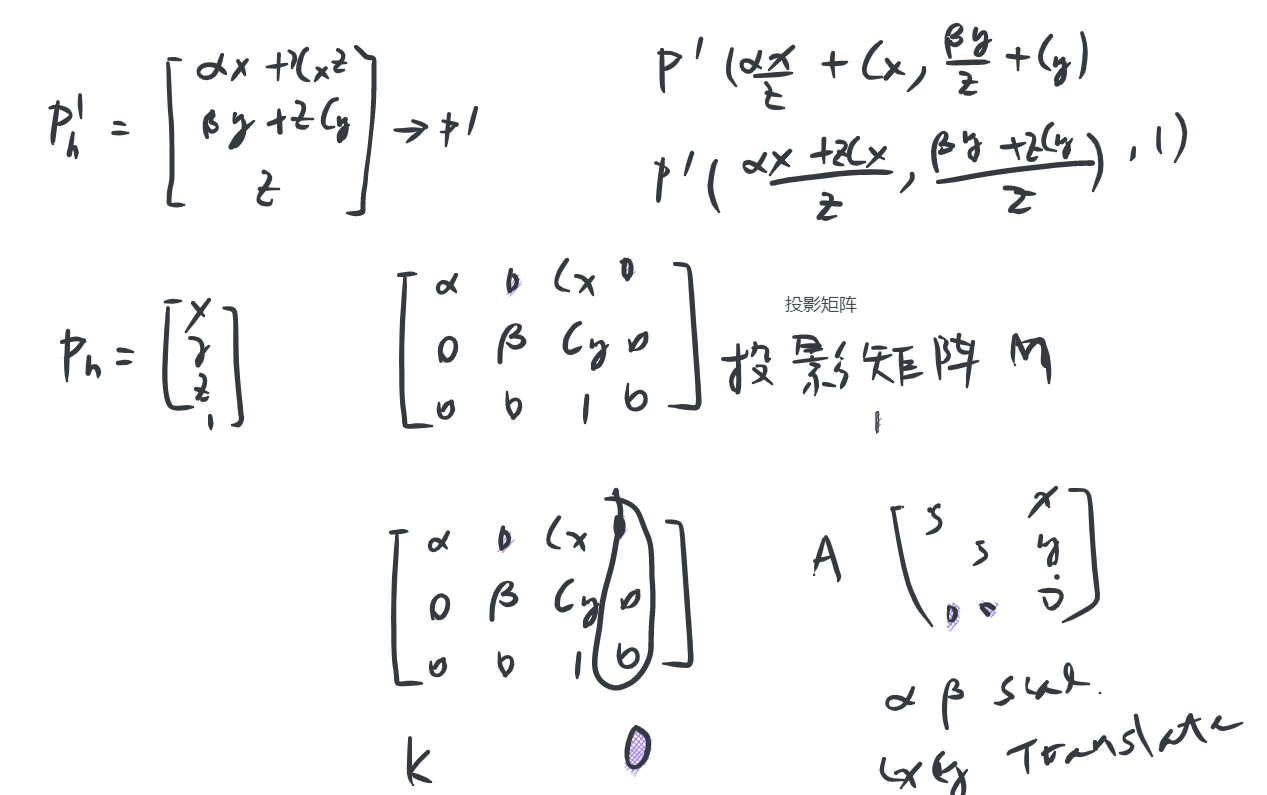 P'h = [ αx + zCx
βy + zCy
z ] → P'
P' (αx/z + Cx, βy/z + Cy)
P' ( (αx + zCx)/z, (βy + zCy)/z ) , 1)
Ph = [ x
y
z
1 ]
[ α 0 Cx 0
0 β Cy 0
0 0 1 0 ]
投影矩阵
投影矩阵 M
[ α 0 Cx 0
0 β Cy 0
0 0 1 0 ]
K 0
A [ s x
s y
0 0 0 ]
α β scal.
Cx Cy Translate